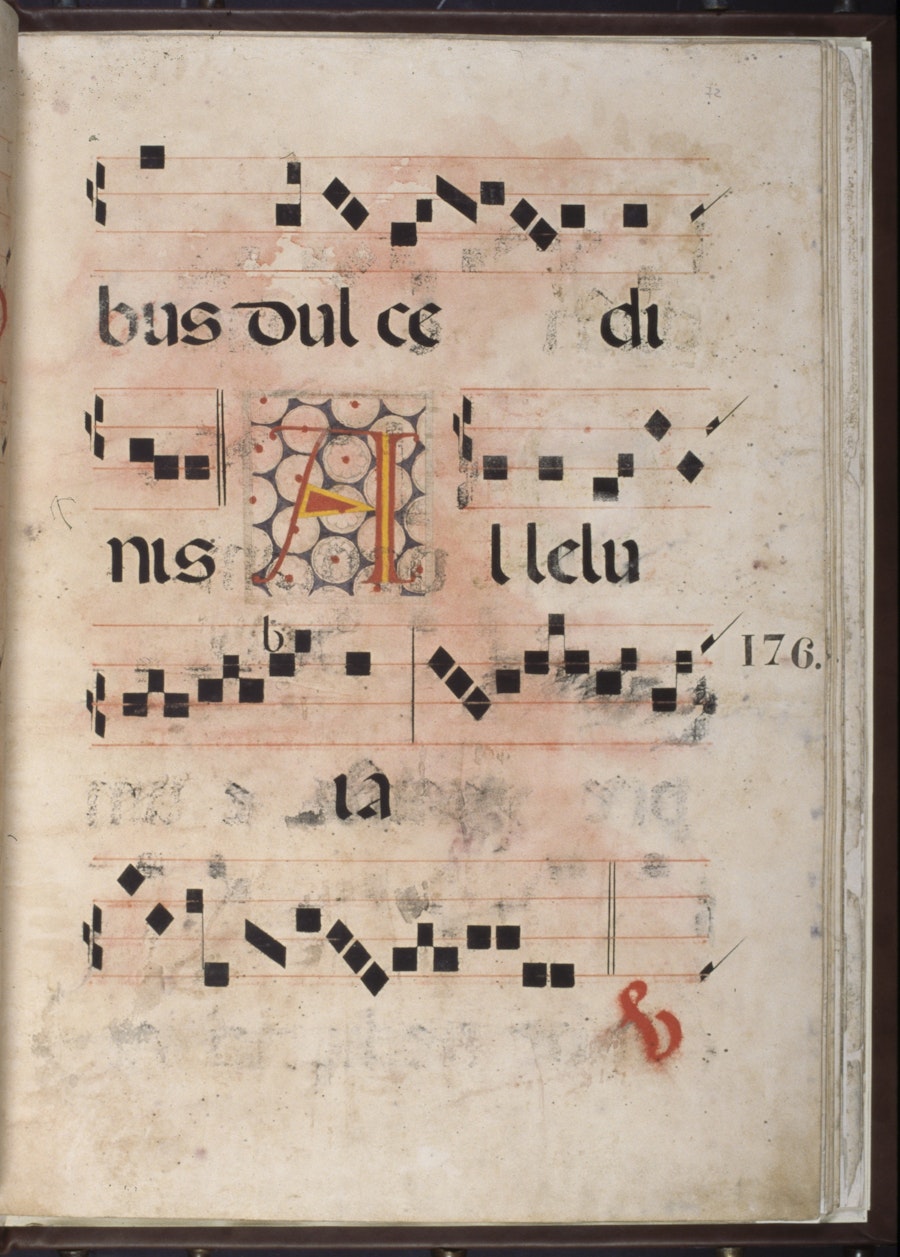 bus dul ce di
nis A l lelu
b
176.
ia